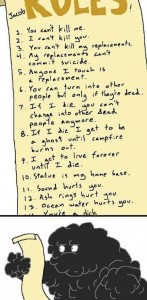 Jacob
RULES
1. You can't kill me.
2. I can't kill you.
3. You can't kill my replacements.
4. My replacements can't
commit suicide.
5. Anyone I touch is
a replacement.
6. You can turn into other
people but only if they're dead.
7. If I die, you can't
change into other dead
people anymore.
8. If I die I get to be
a ghost until campfire
burns out.
9. I get to live forever
until I die.
10. Statue is my home base.
11. Sound hurts you.
12. Ash rings hurt you.
13. Ocean water hurts you.
14. You're a dick